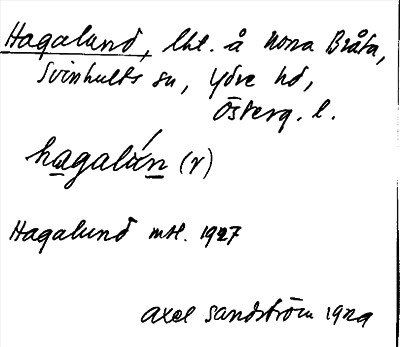 Hagalund, lht. å Norra Bråta,
Svinhults sn, Ydre hd,
Österg. l.
hagalún (r)
Hagalund mtl. 1927
Axel Sandström 1929